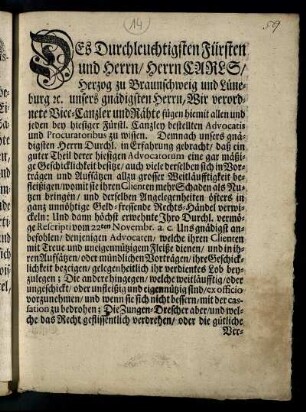 14
59
DEs Durchleuchtigsten Fürsten
und Herrn/ Herrn CARLS/
Herzog zu Braunschweig und Lüne-
burg ꝛc. unsers gnädigsten Herrn, Wir verord-
nete Vice-Cantzler und Rähte fügen hiemit allen und
jeden bey hiesiger Fürstl. Cantzley bestellten Advocatis
und Procuratoribus zu wissen. Demnach unsers gnä-
digsten Herrn Durchl. in Erfahrung gebracht/ daß ein
guter Theil derer hiesigen Advocatorum eine gar mäßi-
ge Geschicklichkeit besitze/ auch viele derselben sich in Vor-
trägen und Aufsätzen allzu grosser Weitläufftigkeit be-
fleißigen/ womit sie ihren Clienten mehr Schaden als Nu-
tzen bringen/ und derselben Angelegenheiten öfters in
gantz unnöthige Geld-fressende Rechts-Händel verwi-
ckeln: Und dann höchst erwehnte Ihro Durchl. vermö-
ge Rescripti vom 22ten Novembr. a. c. Uns gnädigst an-
befohlen/ denjenigen Advocaten, welche ihren Clienten
mit Treue und uneigennützigem Fleiße dienen/ und in ih-
ren Aufsätzen/ oder mündlichen Vorträgen/ ihre Geschick-
lichkeit bezeigen/ gelegenheitlich ihr verdientes Lob bey-
zulegen; Die andere hingegen/ welche weitläufftig/ oder
ungeschickt/ oder unfleißig und eigennützig sind/ ex officio
vorzunehmen/ und wenn sie sich nicht bessern/ mit der cas-
sation zu bedrohen; Die Zungen-Drescher aber/ und wel-
che das Recht geflissentlich verdrehen/ oder die gütliche
Ver-